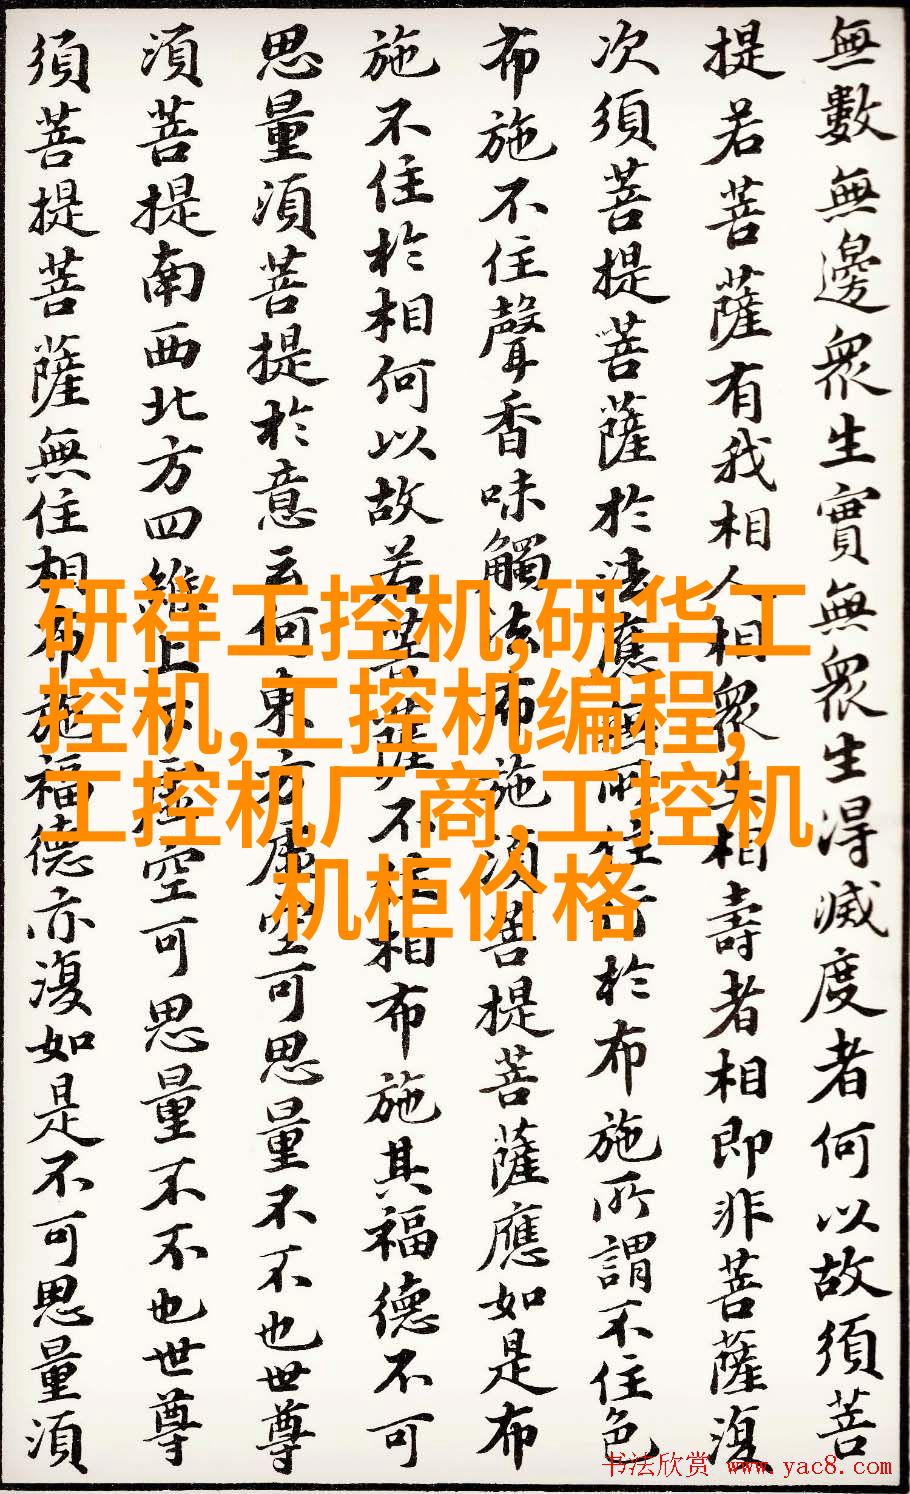 無數無邊衆生實無衆生得滅度者何以故須菩
提若菩薩有我相人相衆生相壽者相即非菩薩復
次須菩提菩薩於法應無所住行於布施所謂不住色
布施不住聲香味觸法布施須菩提菩薩應如是布
施不住於相何以故若菩薩不住相布施其福德不可
思量須菩提於意云何東方虛空可思量不不也世尊
須菩提南西北方四維上下虛空可思量不不也世尊
須菩提菩薩無住相布施福德亦復如是不可思量須
研祥工控机,研华工
控机,工控机编程,
工控机厂商,工控机
机柜价格
书法欣赏 www.yac8.com